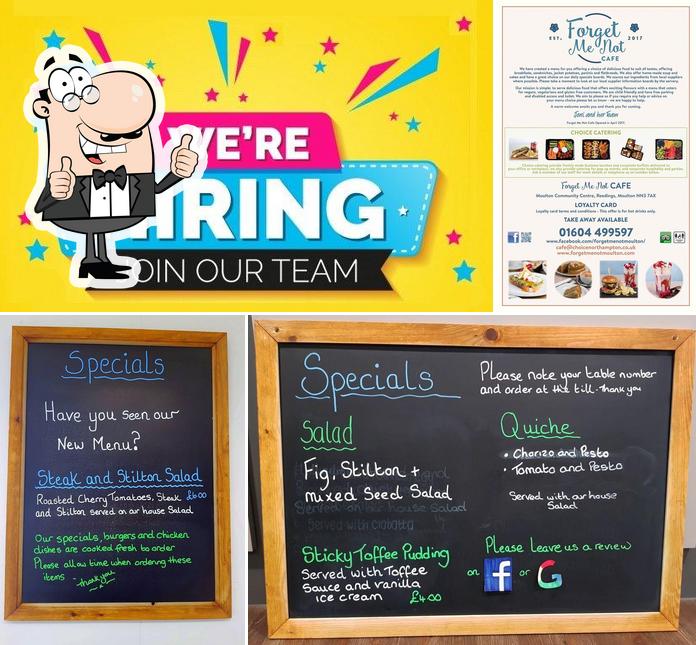 WE'RE
HIRING
JOIN OUR TEAM
EST.
Forget
Me Not
CAFE
2017
Jani and her Team
Forget Me Not Cafe Opened in April 2017.
CHOICE CATERING
Forget Me Not CAFE
Moulton Community Centre, Reedings, Moulton NN3 7AX
LOYALTY CARD
Loyalty card terms and conditions - This offer is for hot drinks only.
TAKE AWAY AVAILABLE
01604 499597
www.facebook.com/forgetmenotmoulton/
cafe@choicenorthampton.co.uk
www.forgetmenotmoulton.com
Specials
Have you seen our
New Menu?
Steak and Stilton Salad
Roasted Cherry Tomatoes, Steak £6.00
and Stilton served on our house Salad
Our specials, burgers and chicken
dishes are cooked fresh to order
Please allow time when ordering these
items - thank you
Specials
Please note your table number
and order at the till. Thank you
Salad
Fig, Stilton +
mixed Seed Salad
Served on our house Salad
Served with ciabatta
Quiche
• Chorizo and Pesto
• Tomato and Pesto
Served with our house
Salad
Sticky Toffee Pudding
Served with Toffee
Sauce and vanilla
ice cream £4.00
Please leave us a review
on f or G